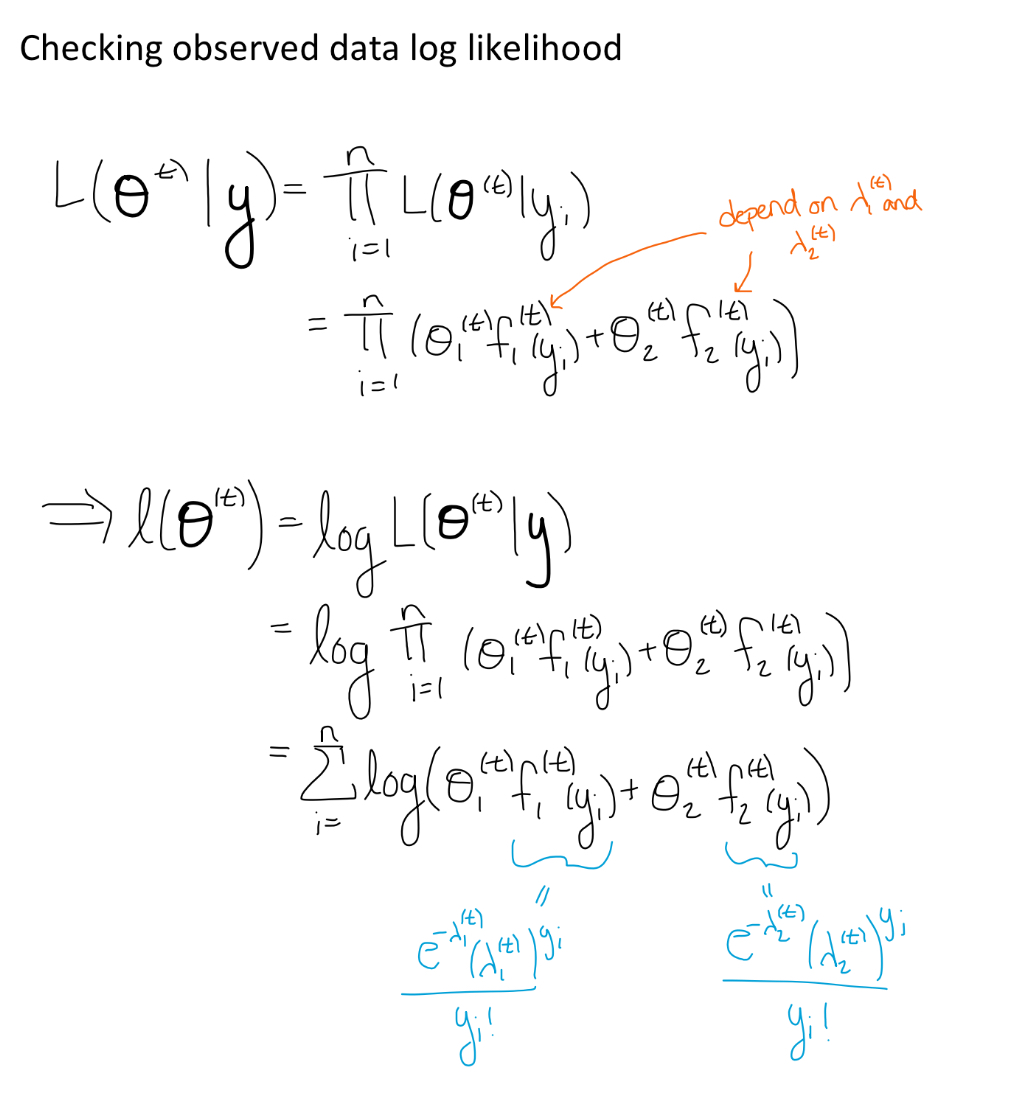 Checking observed data log likelihood
L(θ^(t) | y) = ∏_{i=1}^{n} L(θ^(t) | y_i)
depend on λ_1^(t) and
λ_2^(t)
= ∏_{i=1}^{n} (θ_1^(t) f_1^(t)(y_i) + θ_2^(t) f_2^(t)(y_i))
⇒ ℓ(θ^(t)) = log L(θ^(t) | y)
= log ∏_{i=1}^{n} (θ_1^(t) f_1^(t)(y_i) + θ_2^(t) f_2^(t)(y_i))
= ∑_{i=}^{n} log(θ_1^(t) f_1^(t)(y_i) + θ_2^(t) f_2^(t)(y_i))
= =
e^{-λ_1^(t)} (λ_1^(t))^{y_i} e^{-λ_2^(t)} (λ_2^(t))^{y_i}
y_i! y_i!